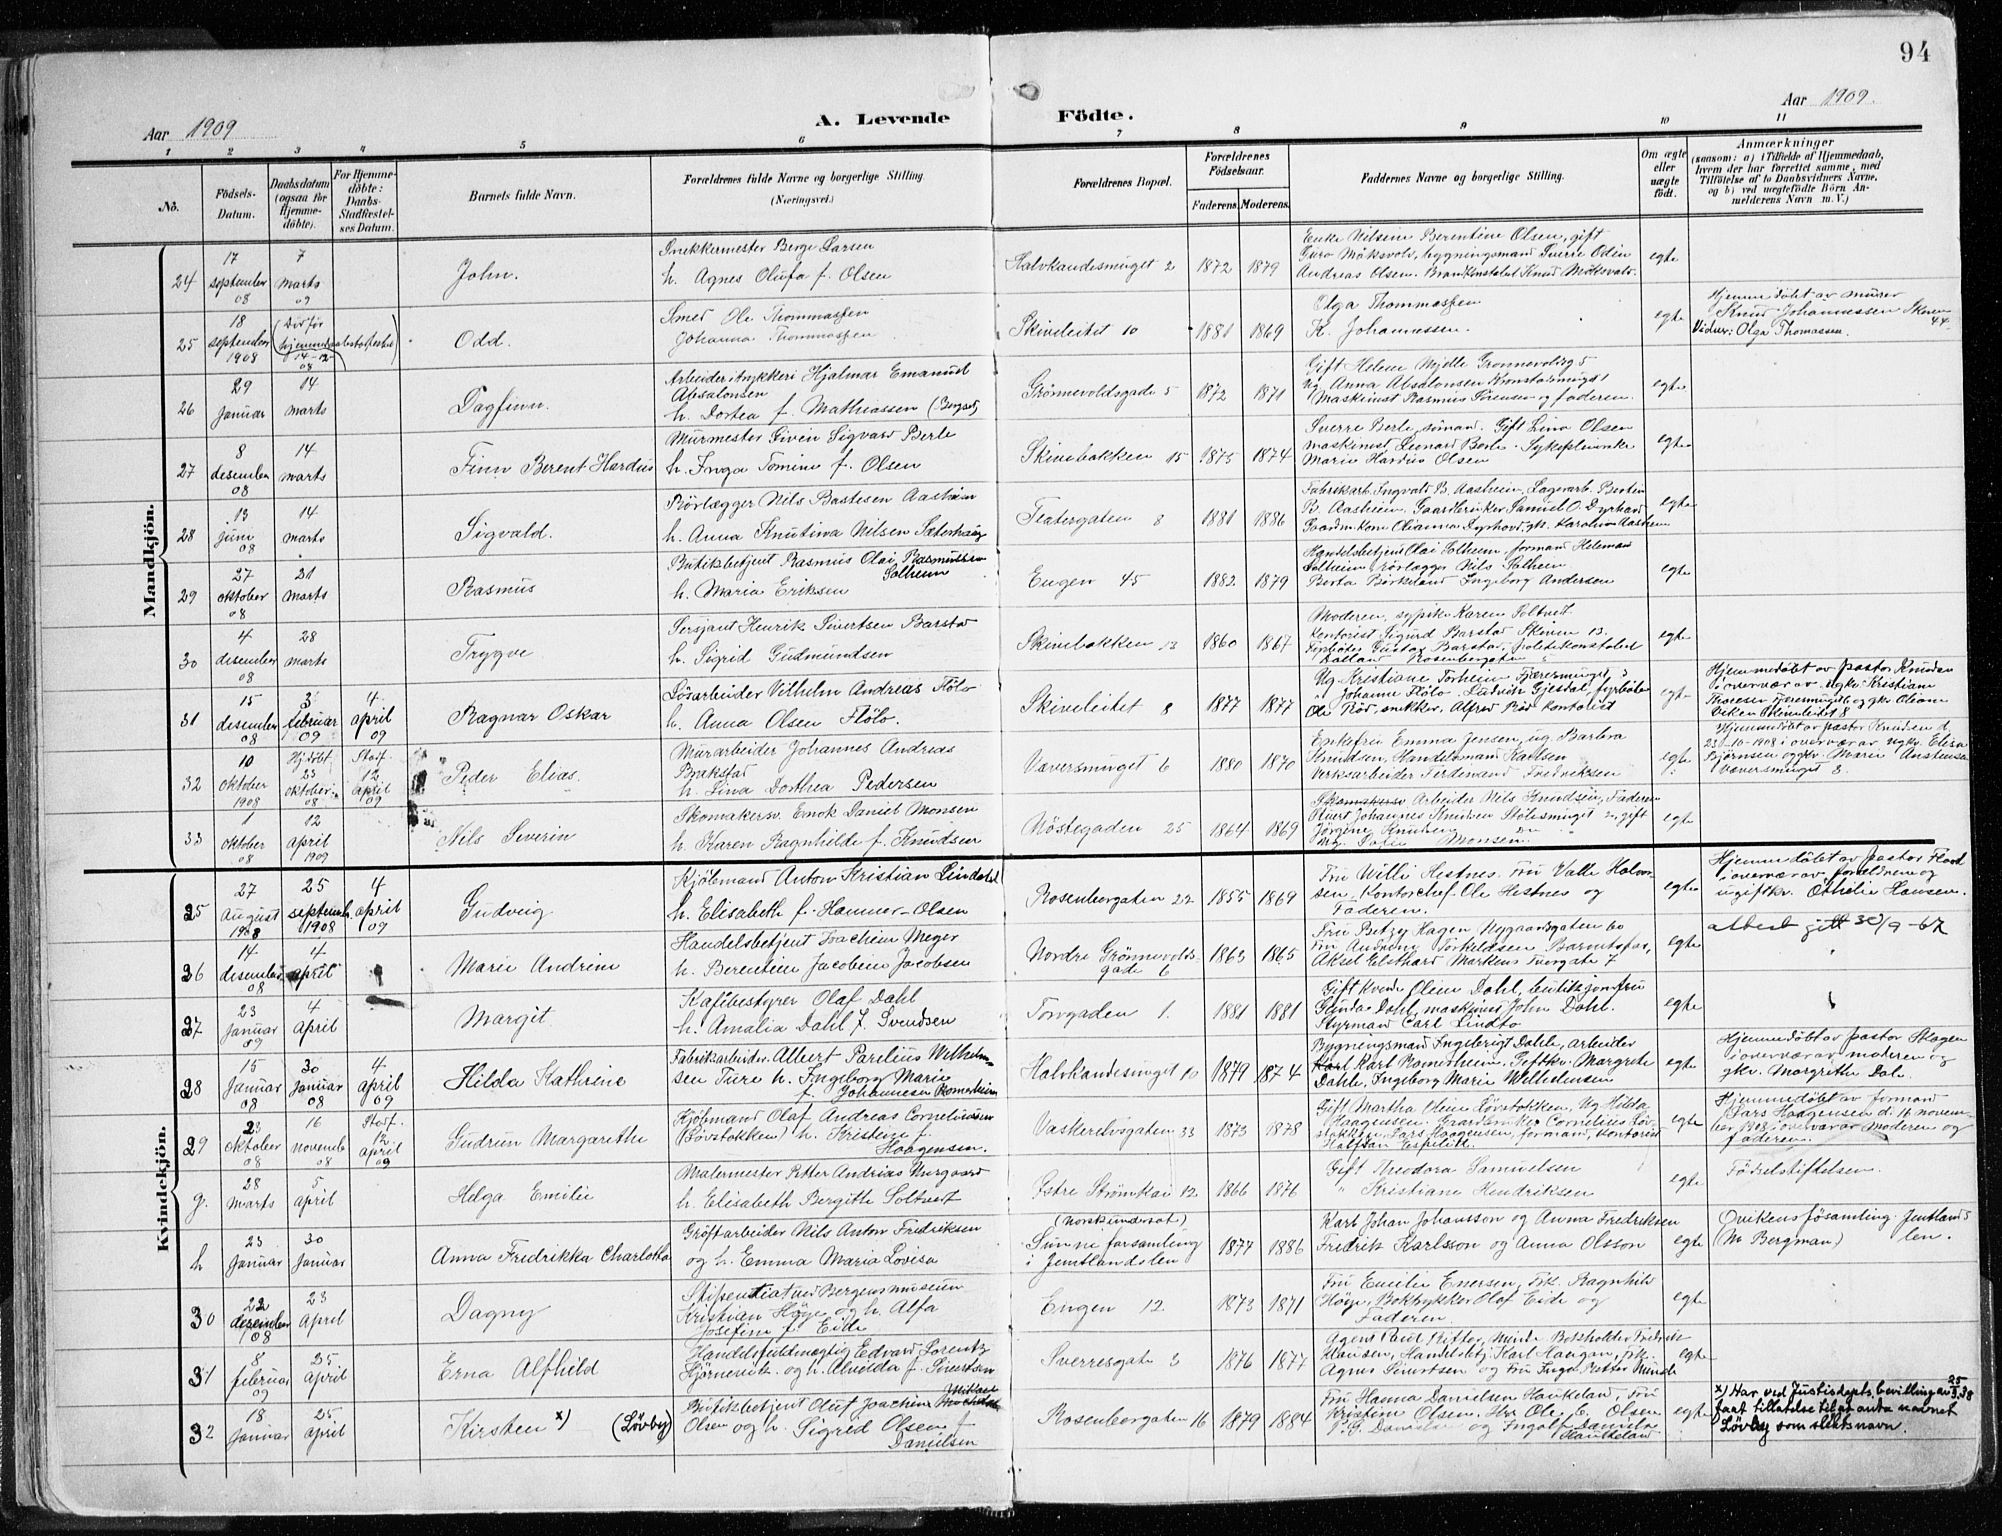 94
Aar 1909
A. Levende
Födte.
Aar 1909.
1 2 3 4 5 6 7 8 9 10 11
No.
Födsels-
Datum.
Daabsdatum
(ogsaa for
Hjemme-
döbte).
For Hjemme-
döbte:
Daabs-
Stadfæstel-
ses Datum.
Barnets fulde Navn.
Forældrenes fulde Navne og borgerlige Stilling
(Næringsvei.)
Forældrenes Bopæl.
Forældrenes
Födselsaar.
Faderens. Moderens.
Faddernes Navne og borgerlige Stilling.
Om ægte
eller
uægte
födt.
Anmærkninger
(saasom: a) i Tilfælde af Hjemmedaab,
hvem der har forrettet samme, med
Tilföielse af to Daabsvidners Navne,
og b) ved uægtefödte Börn An-
melderens Navn m. V.)
Mandkjön.
24
17
september
08
7
marts
09
John.
Snekkermester Berge Larsen
h. Agnes Olufa f. Olsen
Halvkandesmuget 2
1872 1879
Enke Nilsine Berentine Olsen, gift
Andreas Olsen.
egte
25
18
september
1908
14-12
08
Odd.
Smed Ole Thommassen
Johanna Thommassen
Skiveleitet 10
1881 1869
Olga Thommassen
K. Johannessen.
egte
Hjemmedöbt av murer
Knud Johannessen Skiven
44.
Vidner: Olga Thomassen.
26
29
januar
14
marts
Dagfinn.
Arbeider i trykkeri Hjalmar Emanuel
Absalonsen
h. Dortea f. Mathiassen
Grönnevoldsgade 5
1872 1871
Gift Helene Mjelle Grönnevoldsg 5
Maskinist Rasmus Sörensen og faderen.
egte
27
8
desember
08
14
marts
Finn Berent Hardus
Murmester Given Sigvard Berle
h. Inga Tomine f. Olsen
Skivebakken 15
1875 1874
Sverre Berle, sömand. Gift Lina Olsen
maskinist Leonard Berle. Sykepleierske
Marie Hardus Olsen
egte
28
13
juni
08
14
marts
Sigvald.
Rörlægger Nils Bastesen Aasheim
h. Anna Knutina Nilsen Sæterhaug
Teatergaten 8
1881 1886
Fabrikarb. Ingvald B. Aasheim, Lagerarb. Bertin
B. Aasheim, Gaardbruker Samuel O. Dyrhovd
egte
29
27
oktober
08
21
marts
Rasmus
Butikbetjent Rasmus Olai Rasmussen
Solheim
h. Maria Eriksen
Engen 45
1882 1879
Handelsbetjent Olai Solheim, formand Heleman
Solheim, rörlægger Nils Solheim
Berta Birkeland Ingeborg Andersen
egte
30
4
desember
08
28
marts
Trygve
Sersjant Henrik Sivertsen Barstad
h. Sigrid Gudmundsen
Skivebakken 13
1860 1867
Moderen, sypike Karen Soltvedt
Kontorist Sigurd Barstad Skiven 13.
egte
31
15
desember
08
3
februar
09
4
april
09
Ragnar Oskar
Lösarbeider Vilhelm Andreas Flölo
h. Anna Olsen Flölo.
Skiveleitet 8
1877 1877
Ug Kristiane Torheim Fjærersmuget 3
" Johanne Flölo. Ludvik Gjesdal, fyrböter
Ole Röd, snekker. Alfred Röd kontorist
egte
Hjemmedöbt av pastor Knudsen
i overvær av ugkv. Kristiane
32
10
oktober
1908
Hjdöbt
23
oktober
08
Stadf.
12
april
09
Peder Elias.
Murarbeider Johannes Andreas
Brakstad
h. Lina Dorthea Pedersen
Væversmuget 6
1880 1870
Enkefru Emma Jensen, ug. Barbra
Knudsen, Handelsmand Karlsen
Verksarbeider Ferdinand Fredriksen
egte
Hjemmedöbt av pastor Knudsen d.
23-10-1908 i overvær av ugkv. Elisa
Bjørnsen og gkv. Marie Austensen
Væversmuget 8.
33
1
oktober
08
12
april
1909
Nils Severin
Skomakersv. Enok Daniel Monsen
h. Karen Ragnhilde f. Knudsen
Nöstegaden 25
1864 1869
Arbeider Nils Knudsen, Faderen
egte
Kvindekjön.
25
27
August
1908
25
septemb.
1908
4
april
09
Gudveig
Kjöbmand Anton Kristian Lindahl
h. Elisabeth f. Hammer-Olsen
Rosenborgaten 22
1855 1869
Fru Willi Hestnes. Fru Valle Halvor-
sen, Kontorchef Ole Hestnes og
Faderen.
egte
Hjemmedöbt av pastor Flood
i overvær av forældrene og
ugiftkv. Othelie Hansen.
attest gitt 30/9-67
26
14
desember
08
4
april
Marie Andrine
Handelsbetjent Joachim Meyer
h. Berentine Jacobine Jacobsen
Nordre Grönnevolds-
gade 6
1863 1865
Fru Betzy Hagen Nygaardsgaten 60
egte
27
23
Januar
09
4
April
Margit
Kafébestyrer Olaf Dahl
h. Amalia Dahl f. Svendsen
Torvgaden 1.
1881 1881
Gift kvinde Oline Dahl, butikjomfru
Gunda Dahl, maskinist John Dahl.
Styrmand Carl Lindtö
egte
28
15
Januar
08
30
Januar
08
4
april
09
Hilda Kathrine
Fabrikarbeider Albert Parelius Wilhelm-
sen Ture h. Ingeborg Marie
f. Johannesen Romerheim
Halvkandesmuget 10
1879 1874
Bygningsmand Ingebrigt Dahle, arbeider
Karl Romerheim. Giftkv. Margrete
Dahle, Ingeborg Marie Wilhelmsen
egte
Hjemmedöbt av pastor Skagen
i overvær av moderen og
gkv. Margrethe Dale.
29
23
oktober
08
16
novemb
08
Stadf.
12
april
09
Gudrun Margarethe
Kjöbmand Olaf Andreas Corneliussen
(Lövstokken) h. Kristine f.
Haagensen.
Vaskerelvsgaten 33
1873 1878
Gift Martha Oline Lövstokken, Ug Hilda
Haagensen. Gaardbruker Cornelius Löv-
stokken, Lars Haagensen, formand, Kontorist
egte
Hjemmedöbt av formand
Lars Haagensen d. 16 novem-
ber 1908 i overvær av moderen og
faderen.
g.
28
marts
5
april
Helga Emilie
Malermester Petter Andrias Nurgaard
h. Elisabeth Bergithe Soltvedt
Östre Strömkai 12
1866 1876
Gift Theodora Samuelsen
" Kristiane Hendriksen
egte
Födselstiftelsen.
h
23
Januar
30
Januar
Anna Fredrikka Charlotta
Gröftarbeider Nils Anton Fredriksen
og h. Emma Maria Lovisa
(norsk undersat)
Sunne forsamling
i Jemtlandslen
1877 1886
Karl Johan Johansson og Anna Fredriksen
Fredrik Karlsson og Anna Olsson
egte
Ovikens församling. Jemtlands
(M Bergman) len.
30
22
desember
08
23
April
Dagny
Stipentiat ved Bergens museum
Kristian Höye og h. Alfa
Josefine f. Eide
Engen 12
1873 1871
Fru Emilie Enersen, Frk. Ragnhild
Höye, Boktrykker Olaf Eide og
Faderen
egte
31
8
februar
09
25
April
Erna Alfhild
Handelsfuldmægtig Edvard Lorentz
Kjörnevik og h. Alvilda f. Sivertsen
Sverresgate 3
1876 1877
Agent Paul Ritter, Minde Bokholder Fredrik
Hansen, Handelsbetj Karl Haugan, frk.
Agnes Sivertsen og Fru Inga Ritter Minde
egte
32
18
Januar
25
april
Kirsten x) (Lövby)
Butikbetjent Oluf Joachim Mikael
Olsen og h. Sigrid Olsen f.
Danielsen
Rosenborgaten 16
1879 1884
Fru Hanna Danielsen Haukeland, Fru
Kristine Olsen, Hr Ole C. Olsen
egte
x) Har ved Justisdepts. bevilling av 25/3.38
faat tillatelse til at anta navnet
Lövby som slektsnavn.